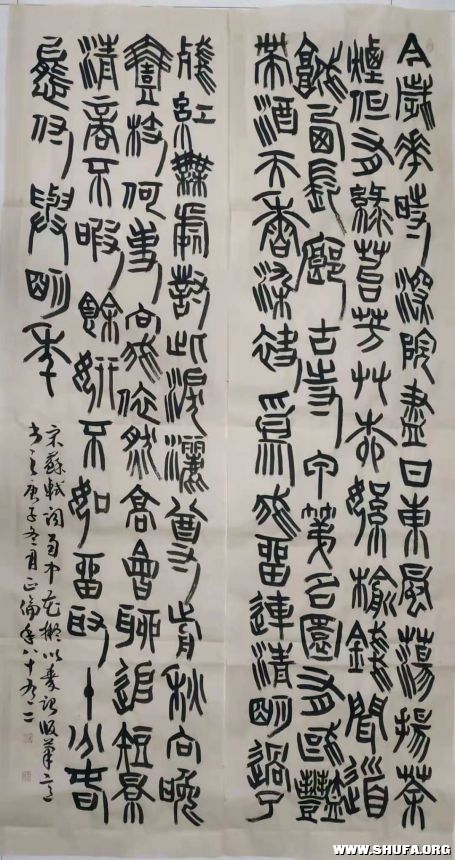 今歲花時深院盡日東風蕩揚茶
煙但有綠苔芳草柳絮榆錢聞道
城西長廊古寺甲第名園有國豔
帶酒天香染袂為我留連清明過了
殘紅無處對此淚灑尊前秋向晚
壹枝何事向我依然高會聊追短景
清商不暇餘妍不如留取十分春
態付與明年
宋蘇軾詞雨中花慢以秦詔版筆意
書之庚子冬月正倫年八十有二
WWW.SHUFA.ORG